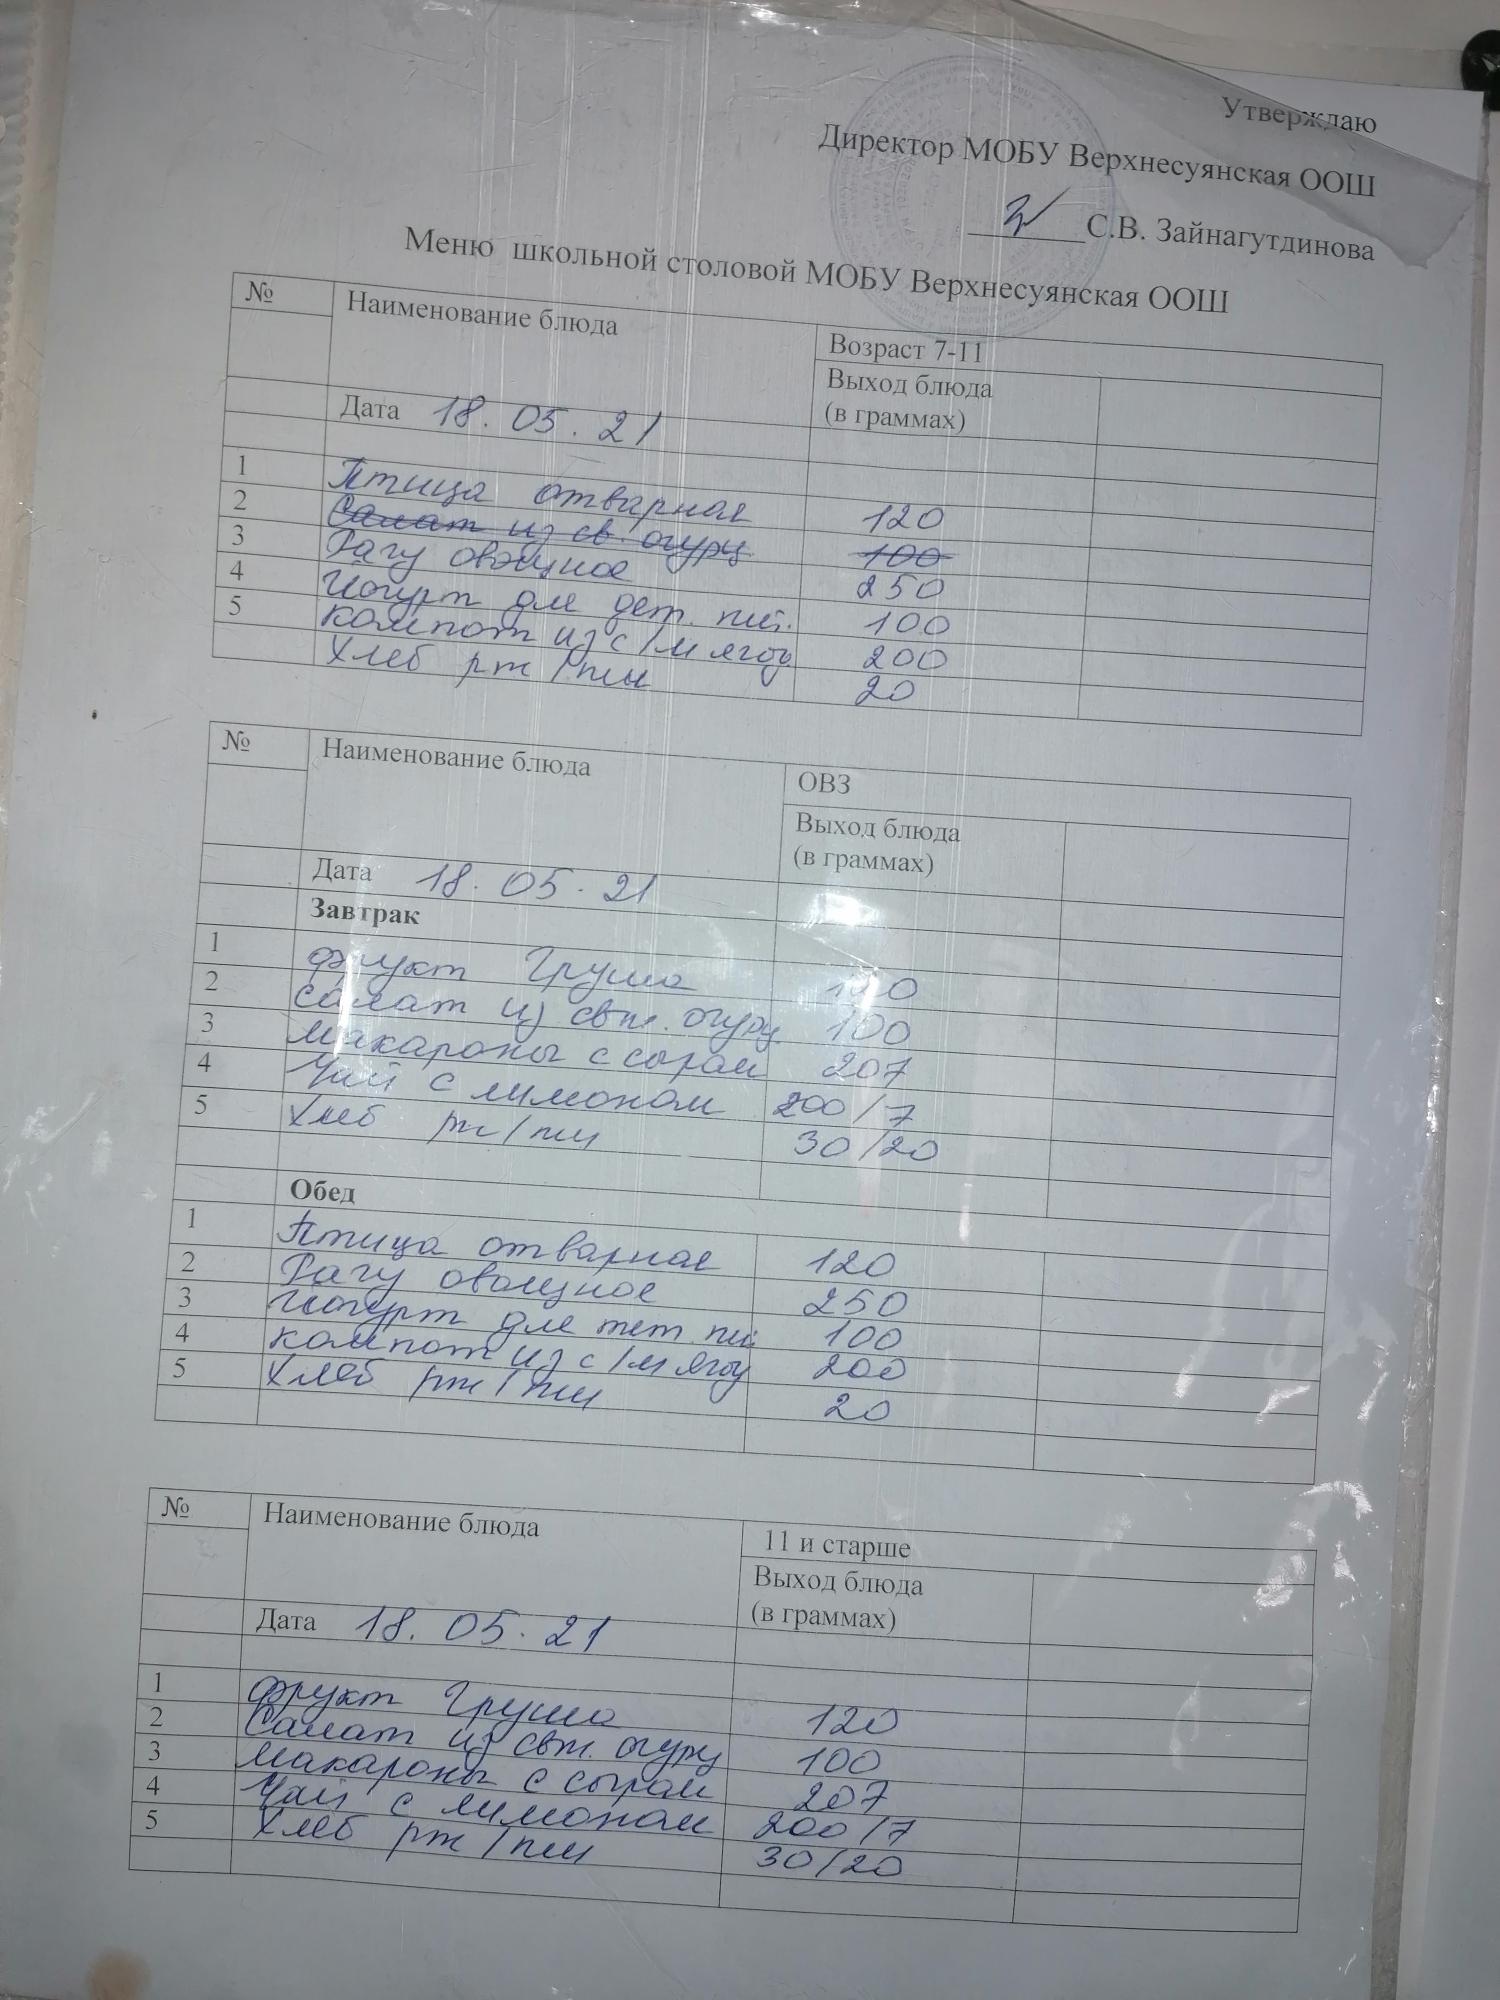 Утверждаю
Директор МОБУ Верхнесуянская ООШ
С.В. Зайнагутдинова
Меню школьной столовой МОБУ Верхнесуянская ООШ
№ Наименование блюда Возраст 7-11
Выход блюда
(в граммах)
Дата 18.05.21
1 Птица отварная 120
2 Салат из св. огурц. 100
3 Рагу овощное 250
4 Йогурт для дет. пит. 100
5 Компот из с/м ягод 200
Хлеб рж/пш 20
№ Наименование блюда ОВЗ
Выход блюда
(в граммах)
Дата 18.05.21
Завтрак
1 Фрукт Груша 120
2 Салат из свж. огурц 100
3 Макароны с сыром 207
4 Чай с лимоном 200/7
5 Хлеб рж/пш 30/20
Обед
1 Птица отварная 120
2 Рагу овощное 250
3 Йогурт для тет. пи. 100
4 Компот из с/м ягод 200
5 Хлеб рж/пш 20
№ Наименование блюда 11 и старше
Выход блюда
(в граммах)
Дата 18.05.21
1 Фрукт Груша 120
2 Салат из свж. огурц 100
3 Макароны с сыром 207
4 Чай с лимоном 200/7
5 Хлеб рж/пш 30/20